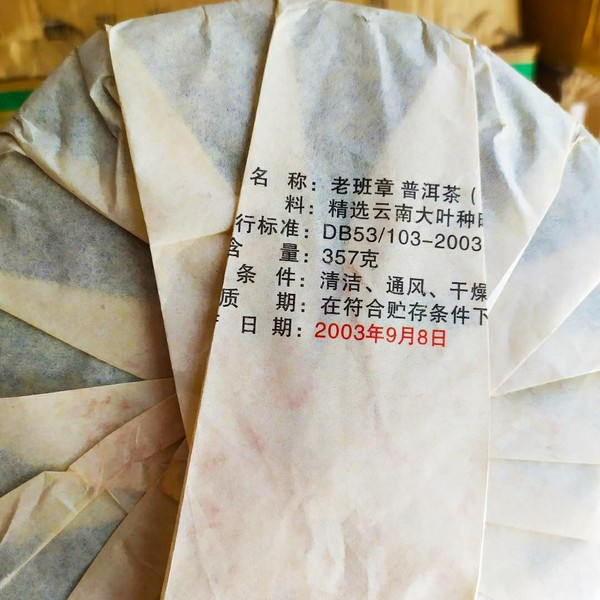 名 称：老班章 普洱茶（
料：精选云南大叶种
行标准：DB53/103-2003
含 量：357克
条 件：清洁、通风、干燥
质 期：在符合贮存条件下
日 期：2003年9月8日